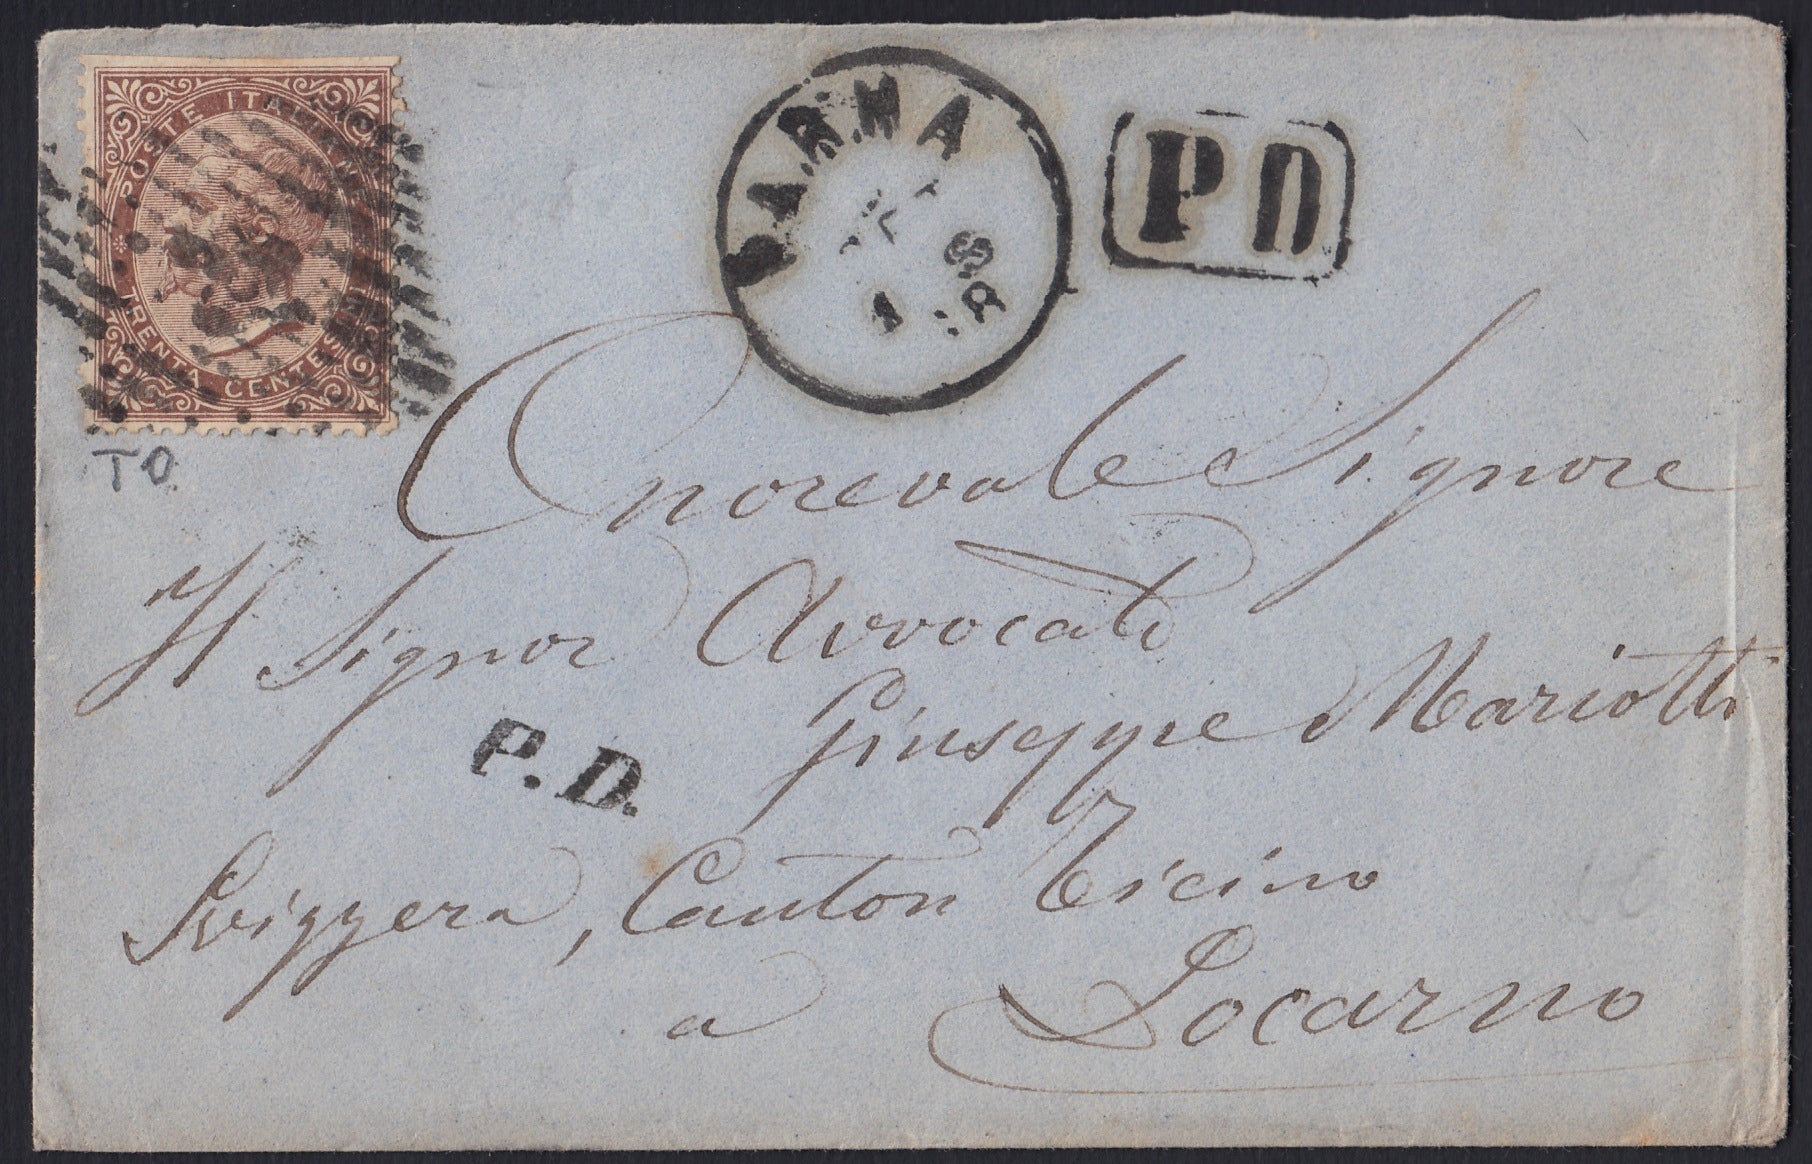 POSTE ITALIANE
TRENTA CENTESIMI
PARMA
PD
TO
Onorevole Signore
Il Signor Avvocato
Giuseppe Mariotti
P.D.
Svizzera, Canton Ticino
a Locarno